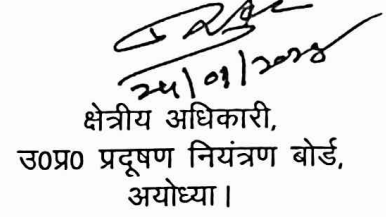 24/01/2024
क्षेत्रीय अधिकारी,
उ0प्र0 प्रदूषण नियंत्रण बोर्ड,
अयोध्या।